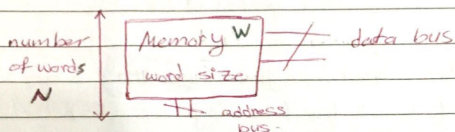 number
of words
N
Memory W
word size
data bus
address
bus.